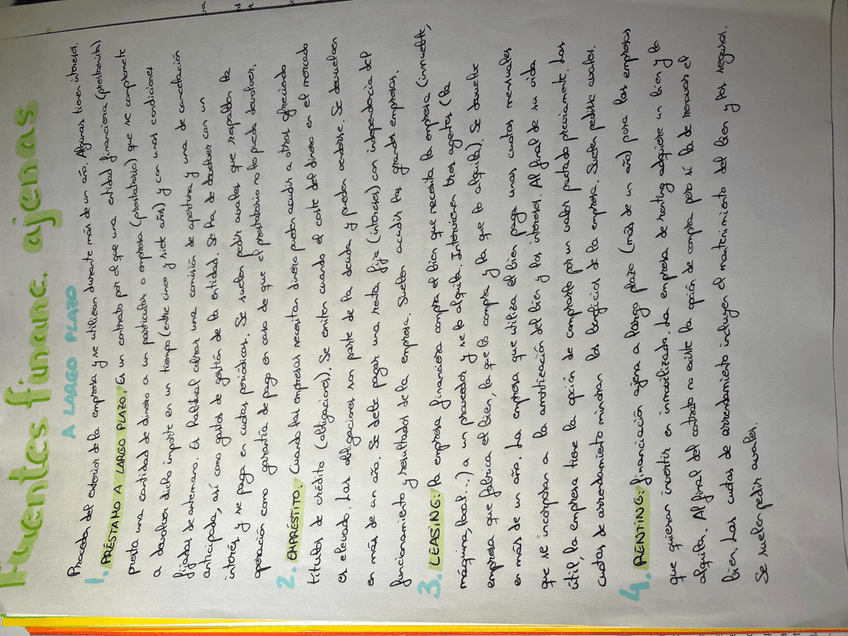 Fuentes financ. ajenas
A LARGO PLAZO
Proceden del exterior de la empresa y se utilizan durante más de un año. Algunas tienen intereses.
1. PRÉSTAMO A LARGO PLAZO. Es un contrato por el que una entidad financiera (prestamista)
presta una cantidad de dinero a un particular o empresa (prestatario) que se compromete
a devolver dicho importe en un tiempo (entre cinco y siete años) y con unas condiciones
fijadas de antemano. Es habitual cobrar una comisión de apertura y una de cancelación
anticipada, así como gastos de gestión de la entidad. Se ha de devolver con un
interés y se paga en cuotas periódicas. Se suelen pedir avales que respalden la
operación como garantía de pago en caso de que el prestatario no lo pueda devolver.
2. EMPRÉSTITO. Cuando las empresas necesitan dinero pueden acudir a otras ofreciendo
títulos de crédito (obligaciones). Se emiten cuando el coste del dinero en el mercado
es elevado. Las obligaciones son parte de la deuda y pueden venderse. Se devuelven
en más de un año. Se debe pagar una renta fija (intereses) con independencia del
funcionamiento y resultados de la empresa. Suelen acudir las grandes empresas.
3. LEASING: la empresa financiera compra el bien que necesita la empresa (inmueble,
máquina, local...) a un proveedor y se lo alquila. Intervienen tres agentes (la
empresa que fabrica el bien, la que lo compra y la que lo alquila). Se devuelve
en más de un año. La empresa que utiliza el bien paga unas cuotas mensuales
que se incorporan a la amortización del bien y los intereses. Al final de su vida
útil, la empresa tiene la opción de comprarlo por un valor pactado previamente. Las
cuotas de arrendamiento minoran los beneficios de la empresa. Suelen pedirse avales.
4. RENTING: financiación ajena a largo plazo (más de un año) para las empresas
que quieran invertir en inmovilizado. La empresa de renting adquiere un bien y lo
alquila. Al final del contrato no existe la opción de compra pero sí la de renovar el
bien. Las cuotas de arrendamiento incluyen el mantenimiento del bien y los seguros.
Se suelen pedir avales.